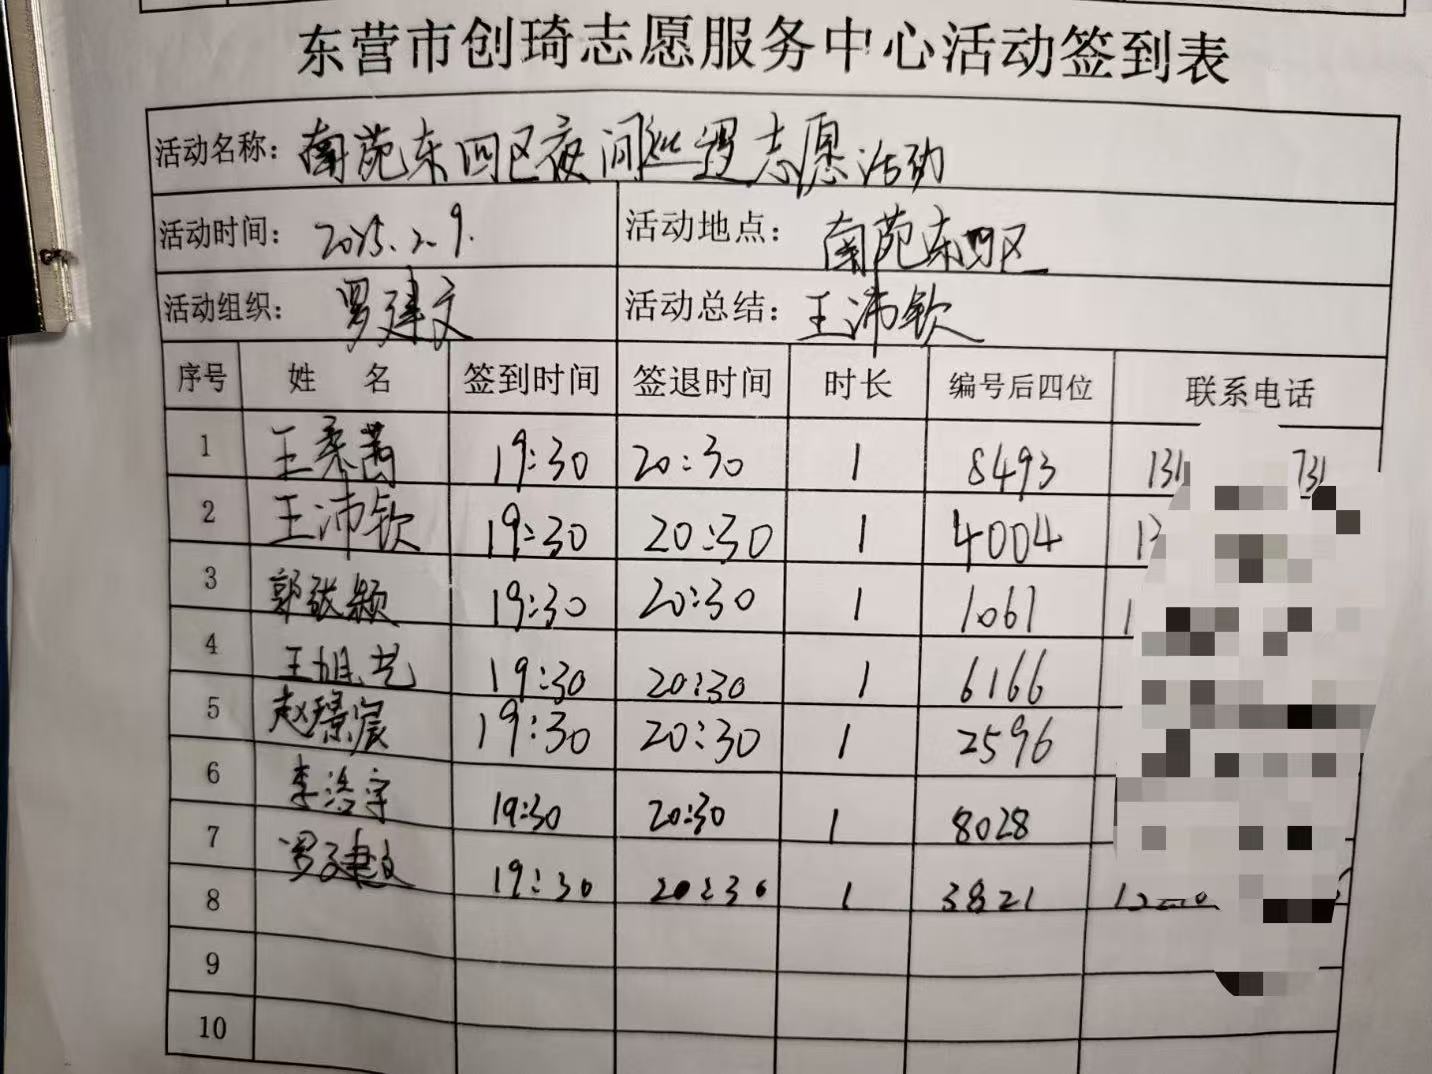 东营市创琦志愿服务中心活动签到表
活动名称: 南苑东四区夜间巡逻志愿活动
活动时间: 2025.2.9. 活动地点: 南苑东四区
活动组织: 罗建文 活动总结: 王沛钦
序号 姓 名 签到时间 签退时间 时长 编号后四位 联系电话
1 王柔茜 19:30 20:30 1 8493 131 731
2 王沛钦 19:30 20:30 1 4004 13
3 郭张颖 19:30 20:30 1 1061 1
4 王旭艺 19:30 20:30 1 6166
5 赵璟宸 19:30 20:30 1 2596
6 李浩宇 19:30 20:30 1 8028
7 罗建文 19:30 20:30 1 3821
8
9
10